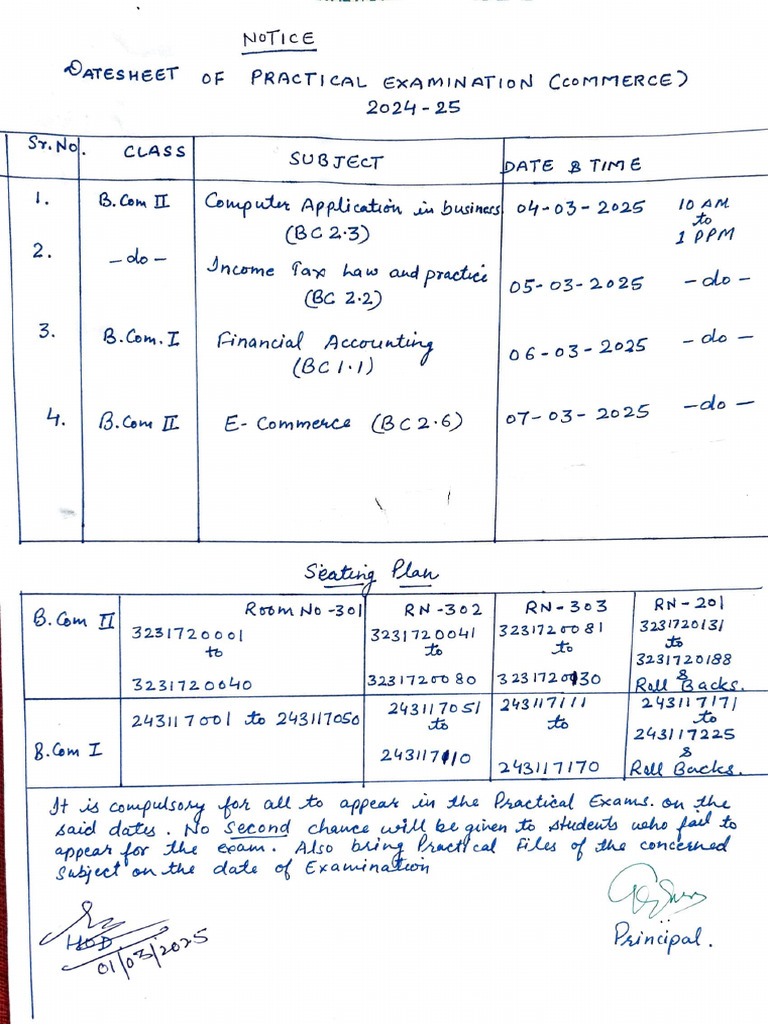 NOTICE
DATESHEET OF PRACTICAL EXAMINATION (COMMERCE)
2024-25
Sr.No. CLASS SUBJECT DATE & TIME
1. B.Com II Computer Application in business (BC 2.3) 04-03-2025 10 AM to 1 PPM
2. -do- Income Tax Law and practice (BC 2.2) 05-03-2025 -do-
3. B.Com. I Financial Accounting (BC 1.1) 06-03-2025 -do-
4. B.Com II E-Commerce (BC 2.6) 07-03-2025 -do-
Seating Plan
B.Com II Room No-301 RN-302 RN-303 RN-201
3231720001 3231720041 3231720081 3231720131
to to to to
3231720040 3231720080 3231720130 3231720188
& Roll Backs.
B.Com I 243117001 to 243117050 243117051 243117111 243117171
to to to
243117110 243117170 243117225
& Roll Backs.
It is compulsory for all to appear in the Practical Exams. on the
said dates. No second chance will be given to students who fail to
appear for the exam. Also bring Practical Files of the concerned
subject on the date of Examination
HOD
01/03/2025
Principal.